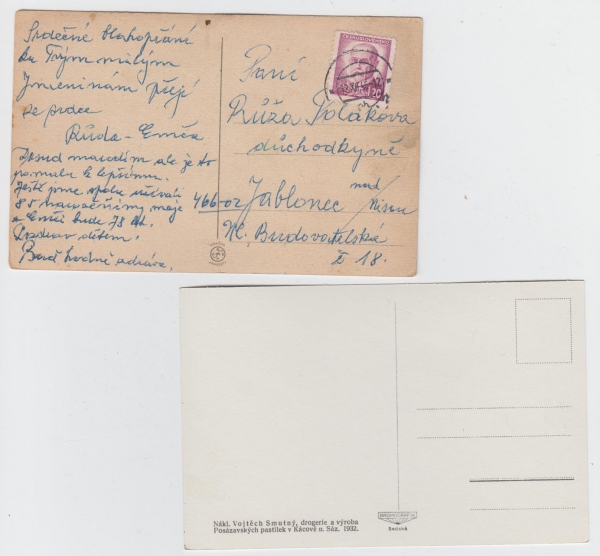 Srdečné blahopřání
ku Tvým milým
Jmeninám přejí
ze srdce
Růda - Emča
Dosud marodím ale je to
pomalu k lepšímu.
Ještě jsme spolu
85 moje
a Emči bude 78 let.
Pozdrav dětem.
Buď hodně zdráva.
ČESKOSLOVENSKO
Paní
Růža Polákova
důchodkyně
466-02 Jablonec nad Nisou
Ul. Budovatelská
č 18.
Nákl. Vojtěch Smutný, drogerie a výroba
Posázavských pastilek v Kácově n. Sáz. 1932.